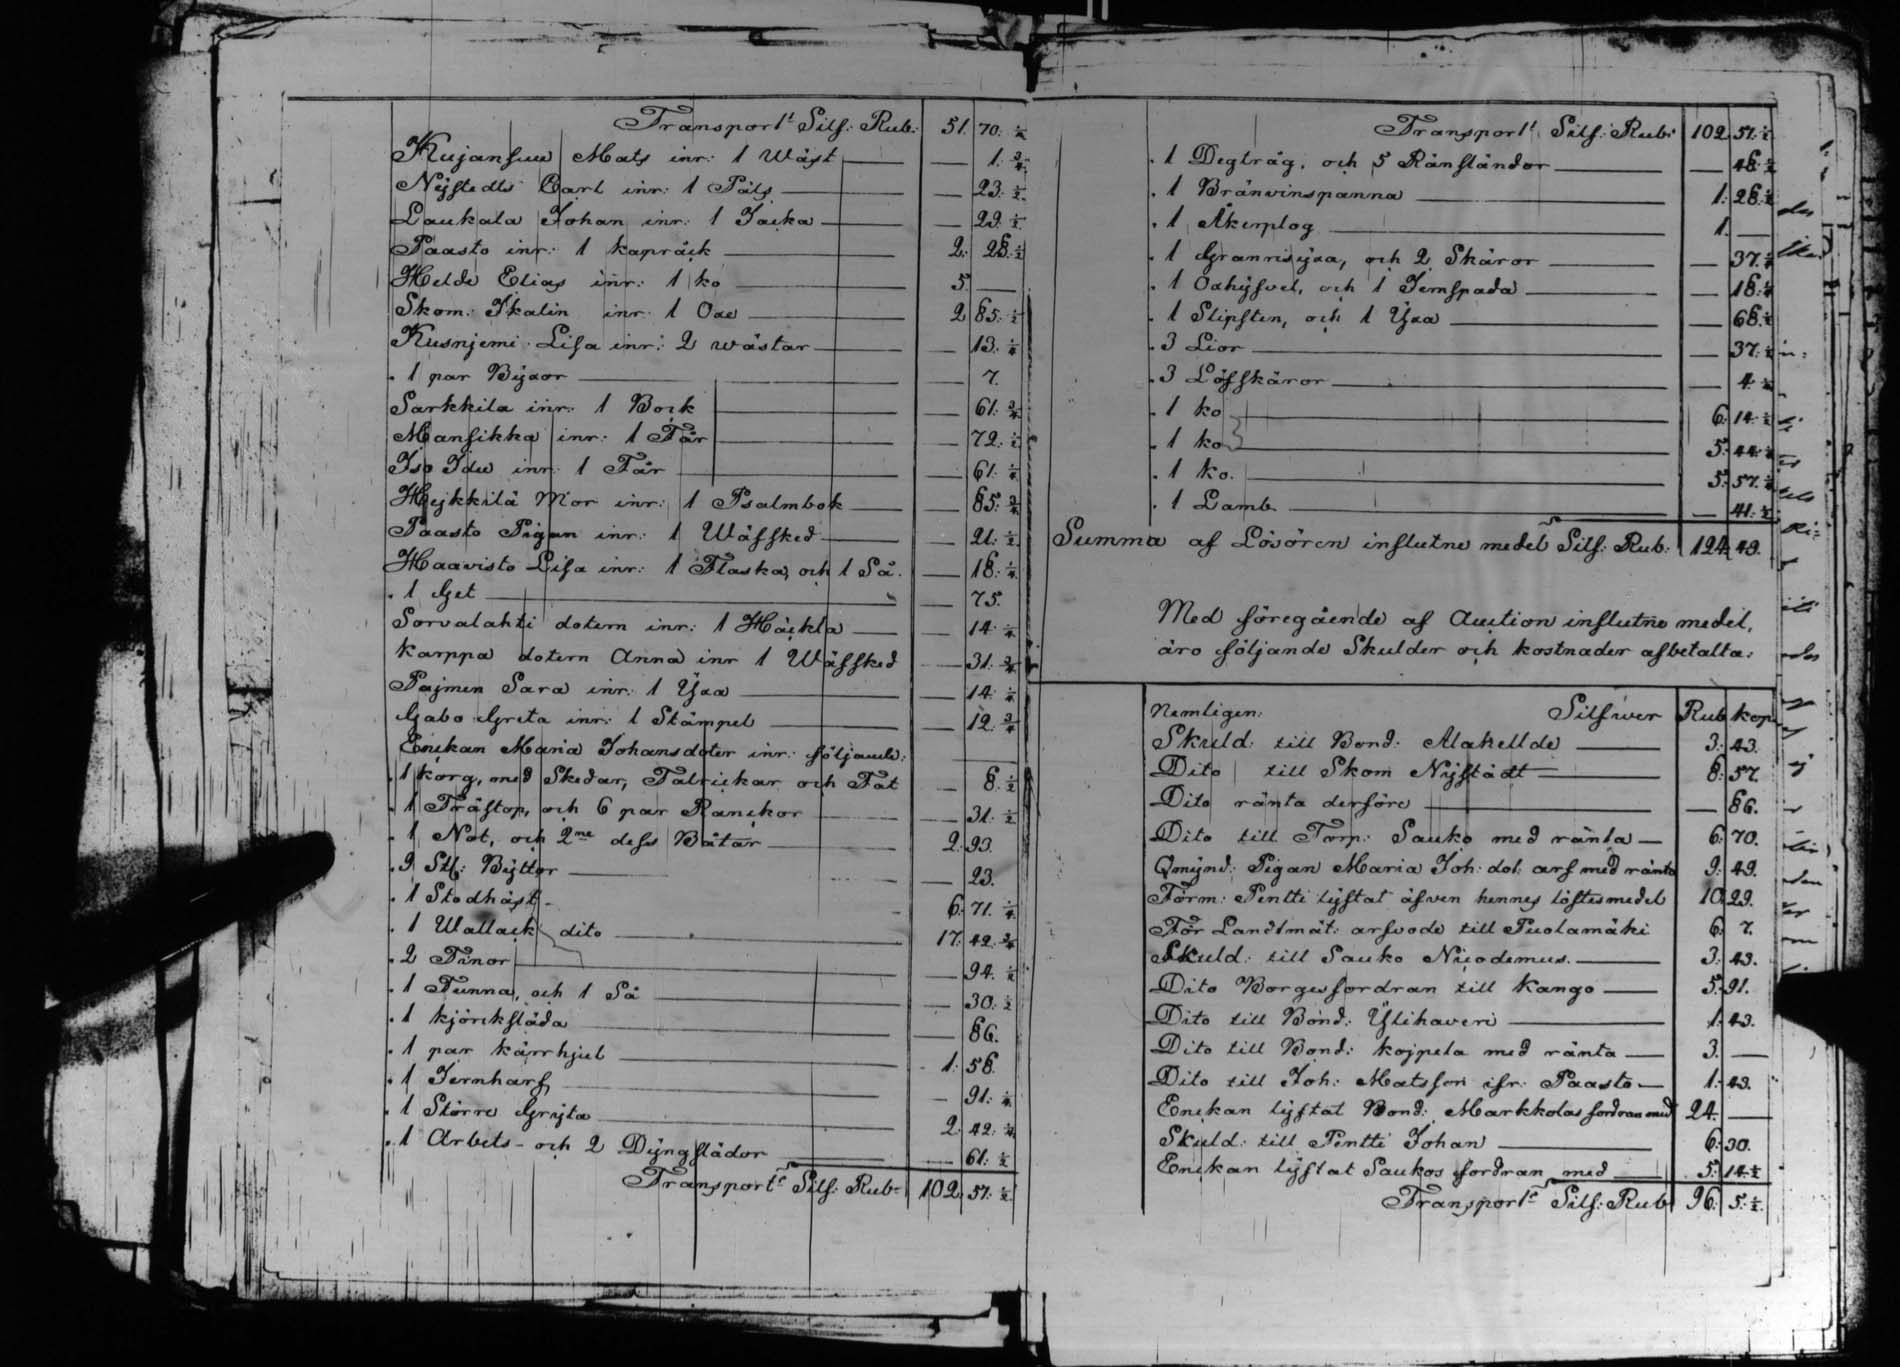 Transport: Silf: Rub: 51. 70. ½
Kujansuu Mats inr: 1 Wäst — 1. ¾
Nÿstedts Carl inr: 1 Päls — 23. ½
Laukala Johan inr: 1 Jacka — 29. ½
Paasto inr: 1 kapräck 2. 28. ½
Heldo Elias inr: 1 ko 5. —
Skom: Ikalin inr: 1 Oxe 2 85. ½
Kusnjemi Lisa inr: 2 wästar — 13. ¼
. 1 par Bÿxor — 7.
Sarkkila inr: 1 Bock — 61. ¾
Mansikka inr: 1 Får — 72. ½
Iso Idu inr: 1 Får — 61. ¼
Hejkkilä Mor inr: 1 Psalmbok — 85. ¾
Paasto Pigan inr: 1 Wäfsked — 21. ½
Haavisto Lisa inr: 1 Flaska, och 1 Så. — 18. ¼
. 1 Get — 75.
Sorvalahti dotern inr: 1 Häckla — 14. ¼
Karppa dotern Anna inr 1 Wäfsked — 31. ¾
Pajmen Sara inr: 1 Ÿxa — 14. ¼
Gabo Greta inr: 1 Stämpel — 12. ¾
Enckan Maria Johansdoter inr: följande:
. 1 korg, med Skedar, Talrickar och Fat — 8. ½
. 1 Trästop, och 6 par Ranckor — 31. ½
. 1 Not, och 2ne dess Båtar 2. 93.
. 9 St: Bÿttor — 23.
. 1 Stodhäst 6. 71. ¼
. 1 Wallack dito 17. 42. ¾
. 2 Tinor — 94. ½
. 1 Tunna, och 1 Så — 30. ½
. 1 kjörcksläda — 86.
. 1 par kärrhjul 1. 58.
. 1 Jernharf — 91. ¼
. 1 Större Grÿta 2. 42. ¾
. 1 Arbets- och 2 Dÿngslädor — 61. ½
Transport: Silf: Rub: 102. 57. ½
Transport: Silf: Rub: 102 57. ½
. 1 Degtråg, och 5 Rånständor — 48. ½
. 1 Bränvinspanna 1. 28. ½
. 1 Åkerplog 1. —
. 1 Granrisÿxa, och 2 Skäror — 37. ¼
. 1 Oxhÿfvel, och 1 Jernspada — 18. ¼
. 1 Slipsten, och 1 Ÿxa — 68. ½
. 3 Lior — 37. ¼
. 3 Löfskäror — 4. ¼
. 1 ko 6. 14. ½
. 1 ko 5. 44. ½
. 1 ko. 5. 57. ¼
. 1 Lamb — 41. ½
Summa af Lösören influtne medel Silf: Rub: 124 49.
Med föregående af Auction influtne medel,
äro följande Skulder och kostnader afbetalta:
Nemligen: Silfwer Rub kop.
Skuld: till Bond: Alakelldo 3. 43.
Dito till Skom Nÿstädt 8. 57.
Dito ränta derföre — 86.
Dito till Torp: Sauko med ränta 6. 70.
Omÿnd: Pigan Maria Joh: dot: arf med ränta 9. 49.
Förm: Pentti lÿftat äfven hennes löftesmedel 10. 29.
För Landtmät: arfvode till Puolamäki 6. 7.
Skuld: till Sauko Nicodemus. 3. 43.
Dito Borgesfordran till Kango 5. 91.
Dito till Bond: Ÿlihaveri 1. 43.
Dito till Bond: kojpela med ränta 3. —
Dito till Joh: Matsson ifr: Paasto 1. 43.
Enckan lÿftat Bond: Markkolas fordran med 24. —
Skuld: till Pentti Johan 6. 30.
Enckan lÿftat Saukos fordran med 5. 14. ½
Transport: Silf: Rub 96. 5. ½